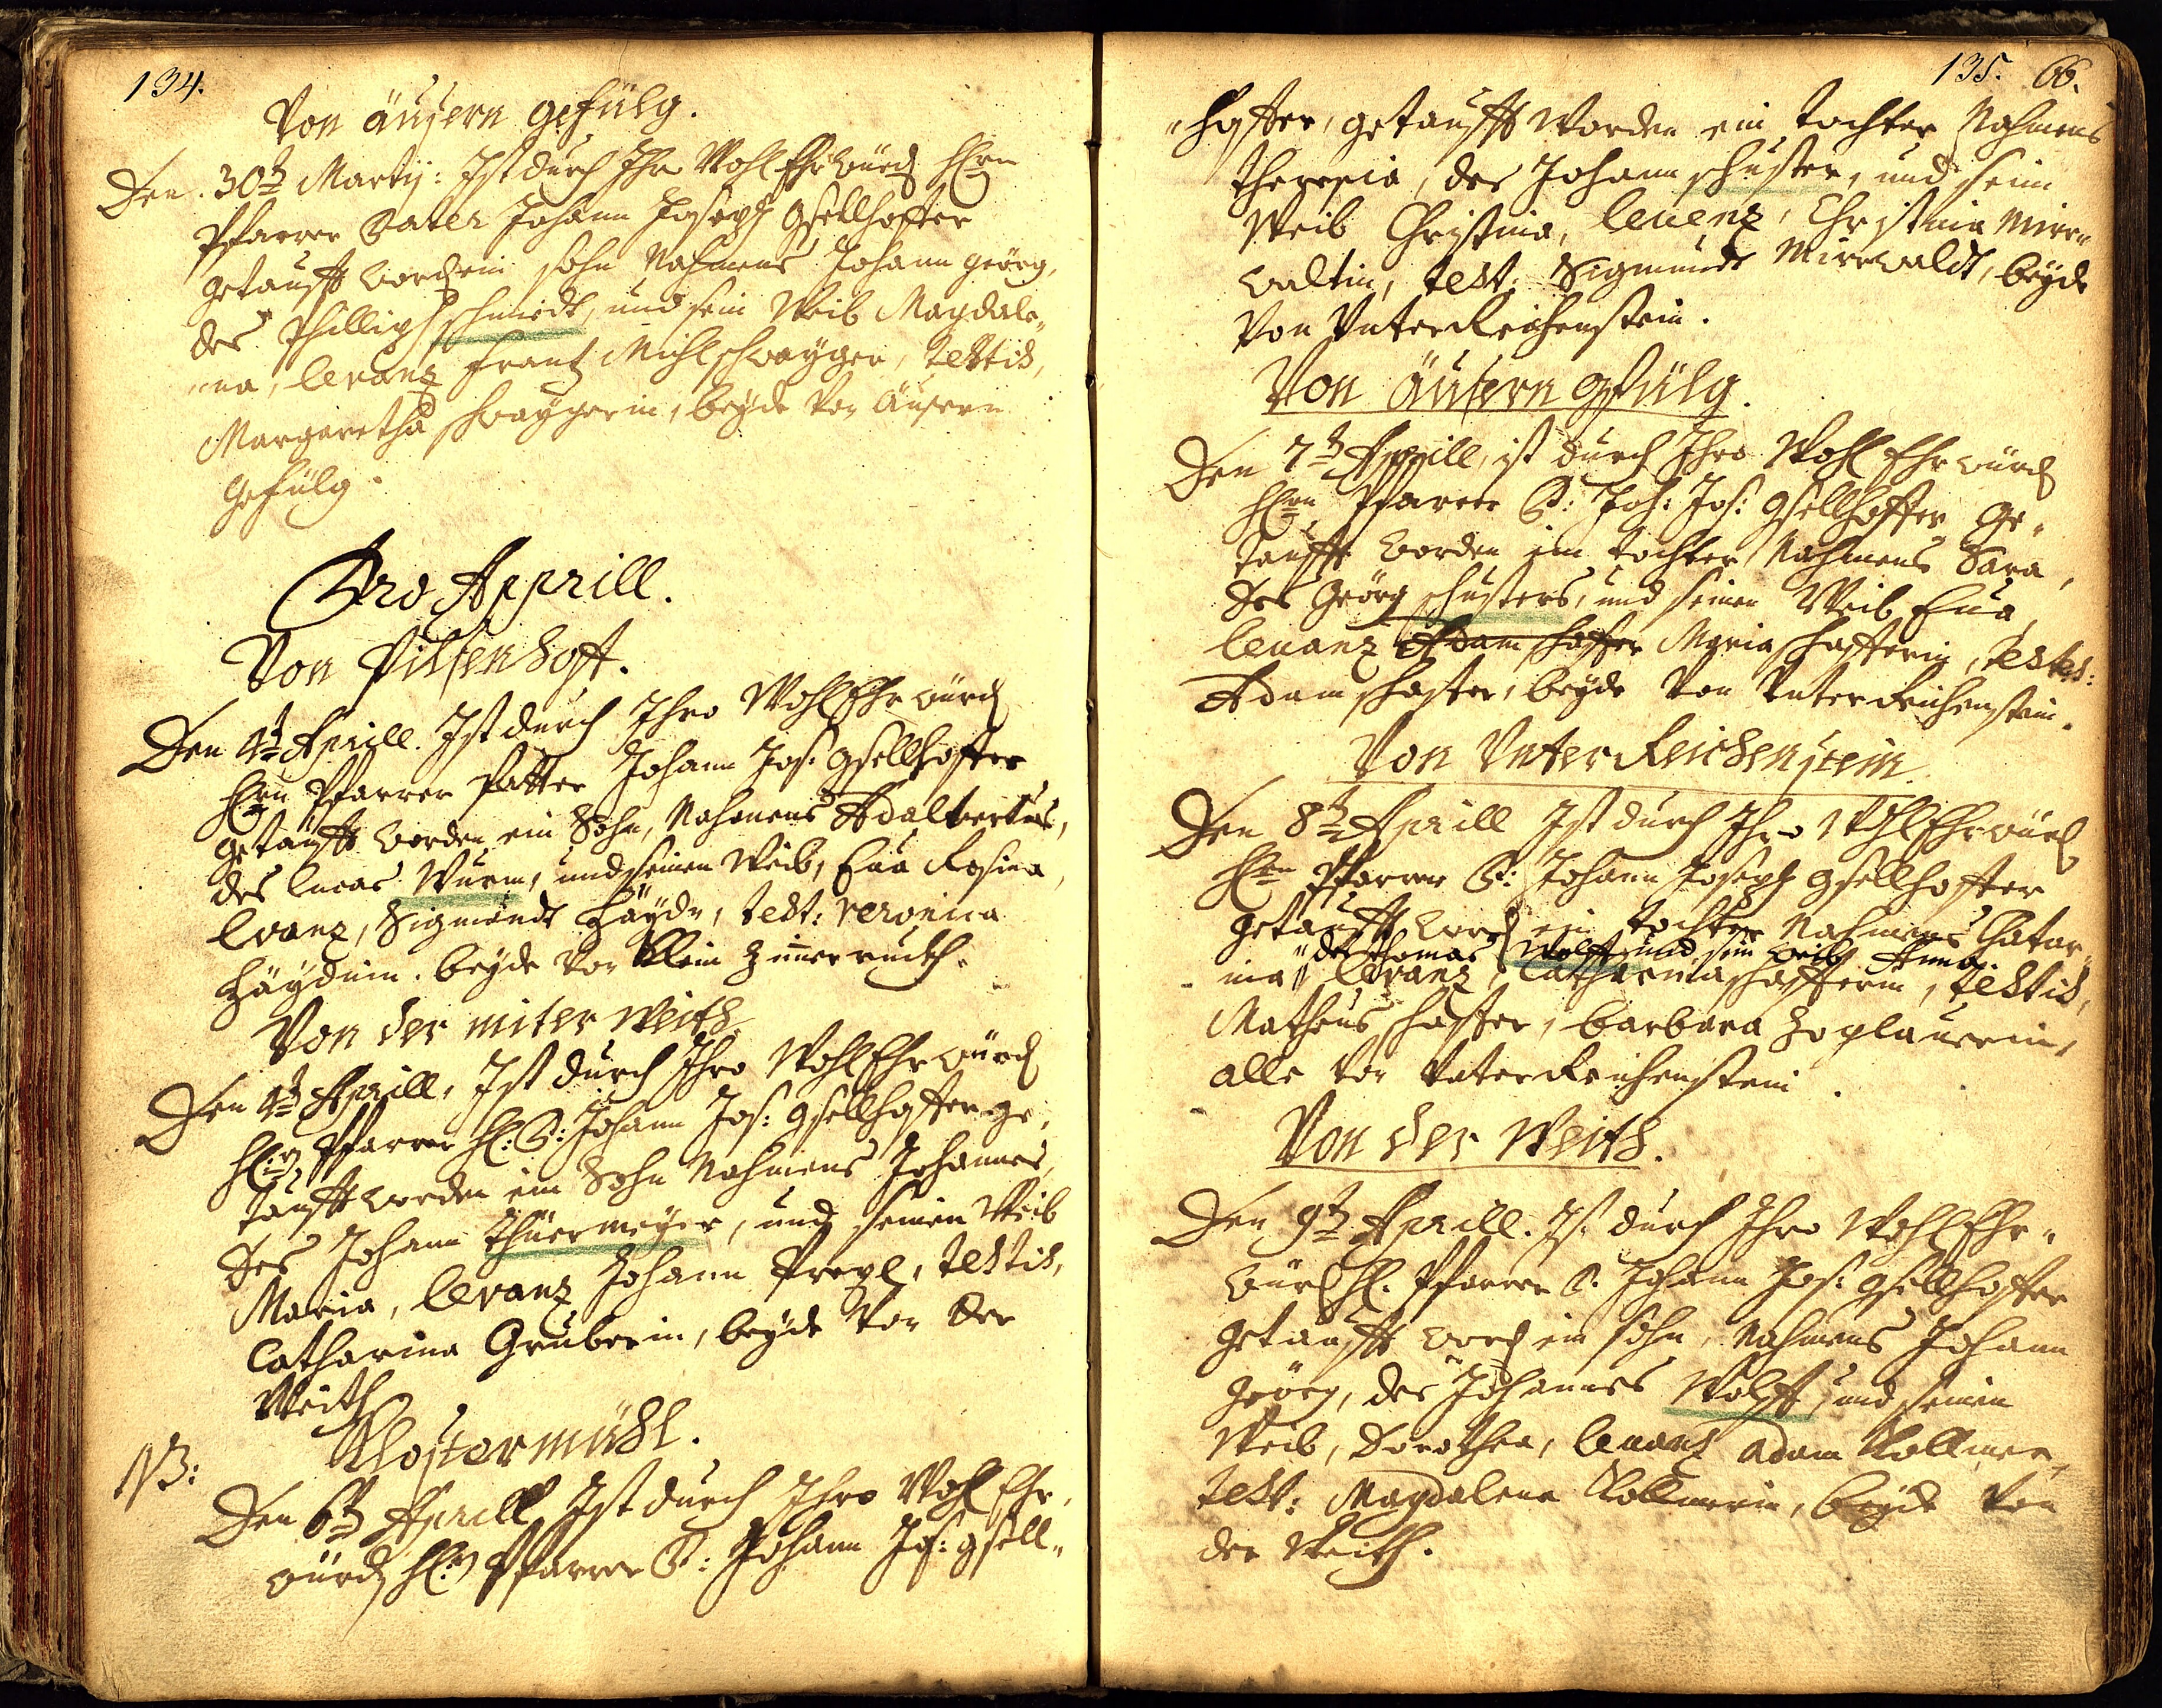 134.
Von äusern gefülg.
Den 30t Martij: Ist durch Ihro Wohl Ehrwürd Hern
Pfarrer Pater Johann Joseph Gsellhoffer
getaufft word ein Sohn Nahmens Johann Georg,
des Phillip Schmidt, und sein Weib Magdale„
„na, levanz Frantz Mihlschwayger, testis,
Margaretha Schwaygerin, beyde von Äusern
gefülg.
Pro Apprill.
Von Pilsenhoff.
Den 4t Aprill. Ist durch Ihro Wohl Ehrwürd
Hern Pfarrer Patter Johann Jos: Gsellhoffer
getaufft worden ein Sohn, Nahmens Adalbertus,
des Lucas Wurm, und seinen Weib, Eua Rosina,
levanz, Sigmundt Häyde, test: Veronica
Häydin. beyde von Klein
Von der miter Weith
Den 4t Aprill, Ist durch Ihro Wohl Ehrwürd
H: Pfarrer H: P: Johann Jos: Gsellhoffer ge„
taufft worden ein Sohn Nahmens Johannes,
des Johann Thürmeyer, und seinen Weib
Maria, levanz Johann Pregl, testis,
Catharina Gruberin, beyde von der
Weith
NB: Klostermühl.
Den 6t Aprill Ist durch Ihro Wohl Ehr„
würd H: Pfarrer P: Johann Jos: Gsell„
135. 66.
„hoffer, getaufft worden ein Tochter Nahmens
Theresia, des Johann Schuster, und sein
Weib Christina, levenz, Christina Mirr„
waltin, test: Sigmundt Mirwaldt, beyde
von Unter Reichenstein.
Von äusern Gfülg.
Den 7t Aprill, ist durch Ihro Wohl Ehrwürd
Hern Pfarrer P: Joh: Jos: Gsellhoffer ge„
taufft worden ein Tochter Nahmens Sara,
des Georg Schusters, und seinen Weib Eua,
levanz Adam Schaffer Maria Schafferin, testes:
Adam Schaffer, beyde von Unter Reichenstein.
Von Unter Reichenstein
Den 8t Aprill Ist durch Ihro Wohl Ehrwürd
Hern Pfarrer P: Johann Joseph Gsellhoffer
getaufft word ein Tochter Nahmens Catar„
des Thomas Wolff und sein Weib Anna.
ina levanz, Catharina Schafferin, testis,
Matheus Schaffer, Barbara
alle von Unter Reichenstein.
Von der Weith.
Den 9t Aprill. Ist durch Ihro Wohl Ehr„
würd H: Pfarrer P. Johann Jos: Gsellhoffer
getaufft word ein Sohn, Nahmens Johann
Georg, des Johannes Wolff, und seinen
Weib, Dorothea, levanz Adam Kollmer,
test: Magdalena Kollmerin, beyde von
der Weith.